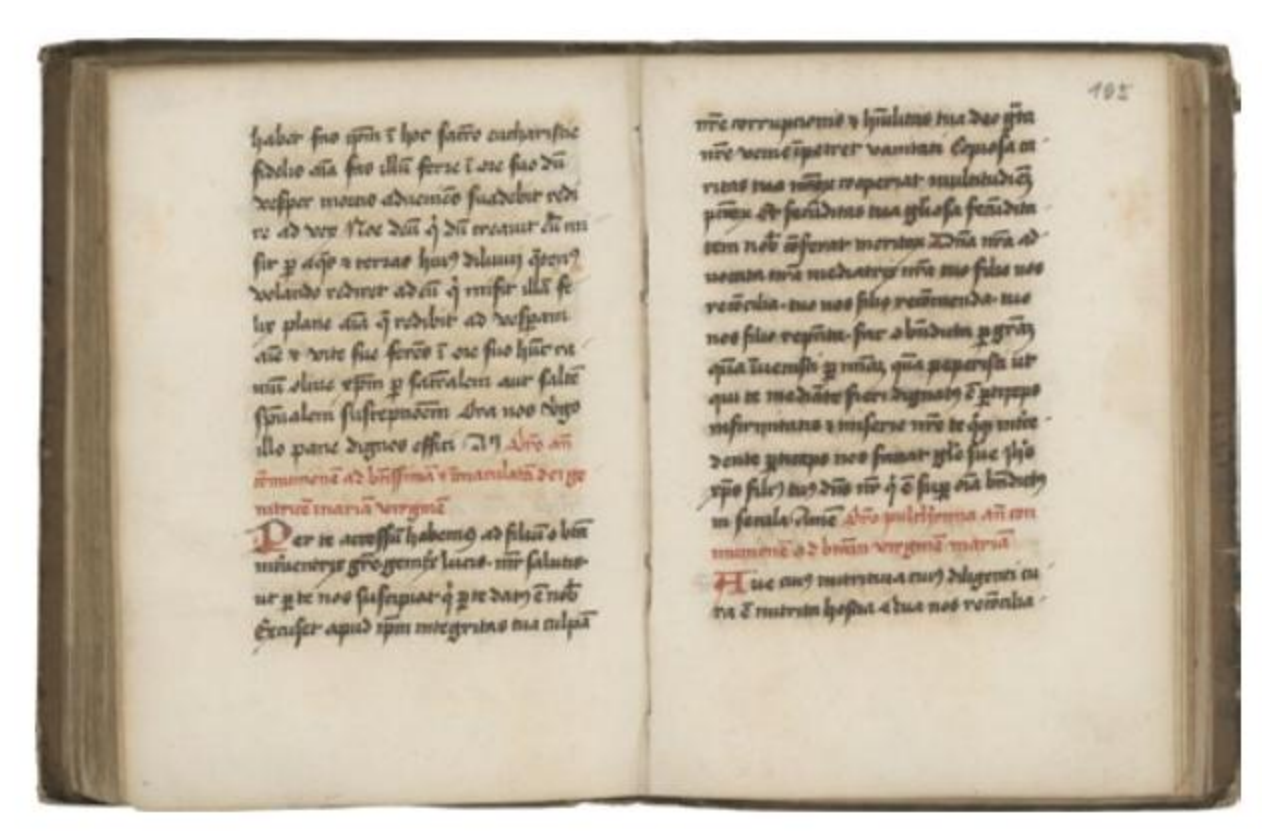 haber suo xpm ī hoc sacro eucharistie
fidelis aīa suo illū ferre ī ore suo dū
vesper mortis advenies suadebit redi
re ad ver Noe deū q dū creavit cū mi
sit p aq̄s ⁊ terras hui⁹ diluvij
volando rediret ad eū q̄ misit illā fe
lix plane aīa q̄ redibit ad vesperam
⁊ vite sue ferēs ī ore suo hūc ra
mū olive xpm p sacralem aut saltē
spūalem susceptionem Ora nos virgo
illo pane dignos effici Am̄ Oro añ
cōmunionē ad btissimā ⁊ īmaculatā dei ge
nitricē mariā virginē
Per te accessū habem⁹ ad filiū o btā
inventrix grē genitrix lucis mr̄ salutis
ut p te nos suscipiat q̄ p te dat⁹ ē nob̄
Excuset apud ipm integritas tua culpā
105
nr̄e corrupcionis ⁊ hūilitas tua deo grata
nr̄e veniā īpetret vanitati Copiosa ca
ritas tua nr̄oꝝ cooperiat multitudiē
pctoꝝ Et fecūditas tua gl̄iosa fecūdita
tem nob̄ cōferat meritoꝝ Dn̄a nr̄a ad
vocata nr̄a mediatrix nr̄a tuo filio nos
recōcilia tuo nos filio recōmenda tuo
nos filio repn̄ta fac o bn̄dicta p grām
quā īvenisti p quā peperisti ut
qui te mediāte fieri dignat⁹ ē pticeps
infirmitatis ⁊ miserie nr̄e te q̄z īterce
dente pticeps nos faciat gl̄e sue ihs
xps fili⁹ tu⁹ dn̄s nr̄ q̄ ē sup oīa bn̄dict⁹
in secula Amē Oro pulcherrima añ com
munionē ad btam virginē mariā
Ave cui⁹ nutritiva cui⁹ diligenti cu
ra ē nutrita hostia a dua nos recōcilia